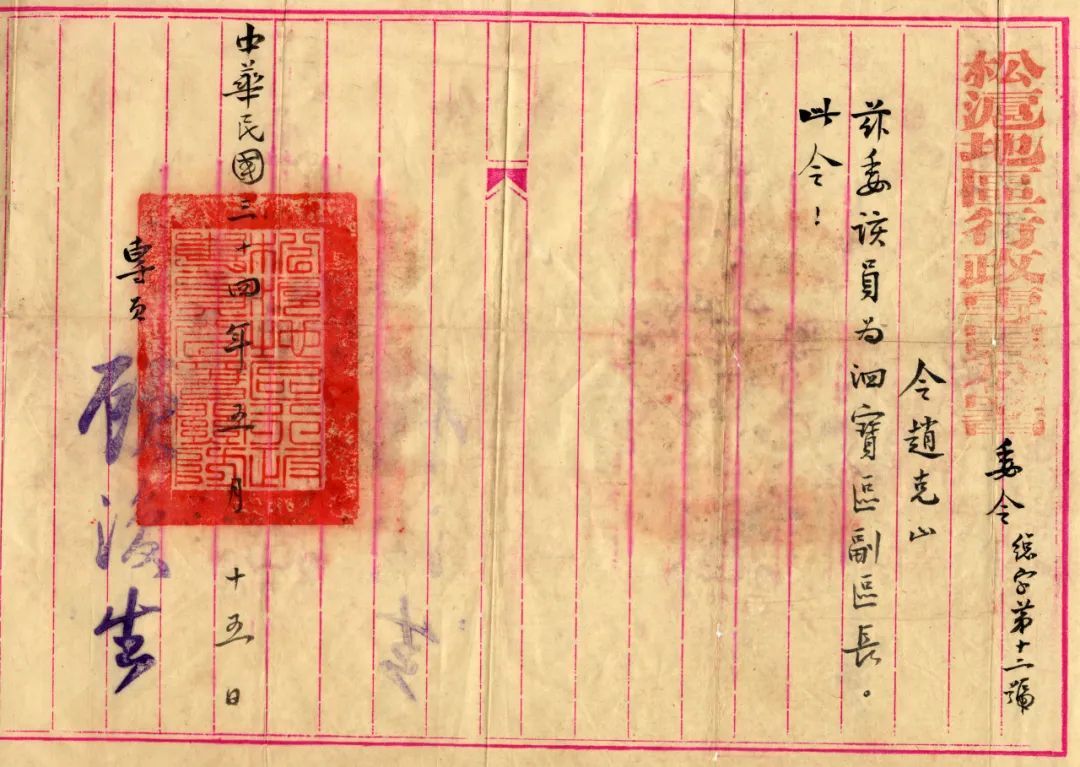 松滬地區行政專員公署
委令
總字第十二號
令趙克山
茲委該員为泗寶區副區長。
此令！
中華民國三十四年五月十五日
專員
顧復生